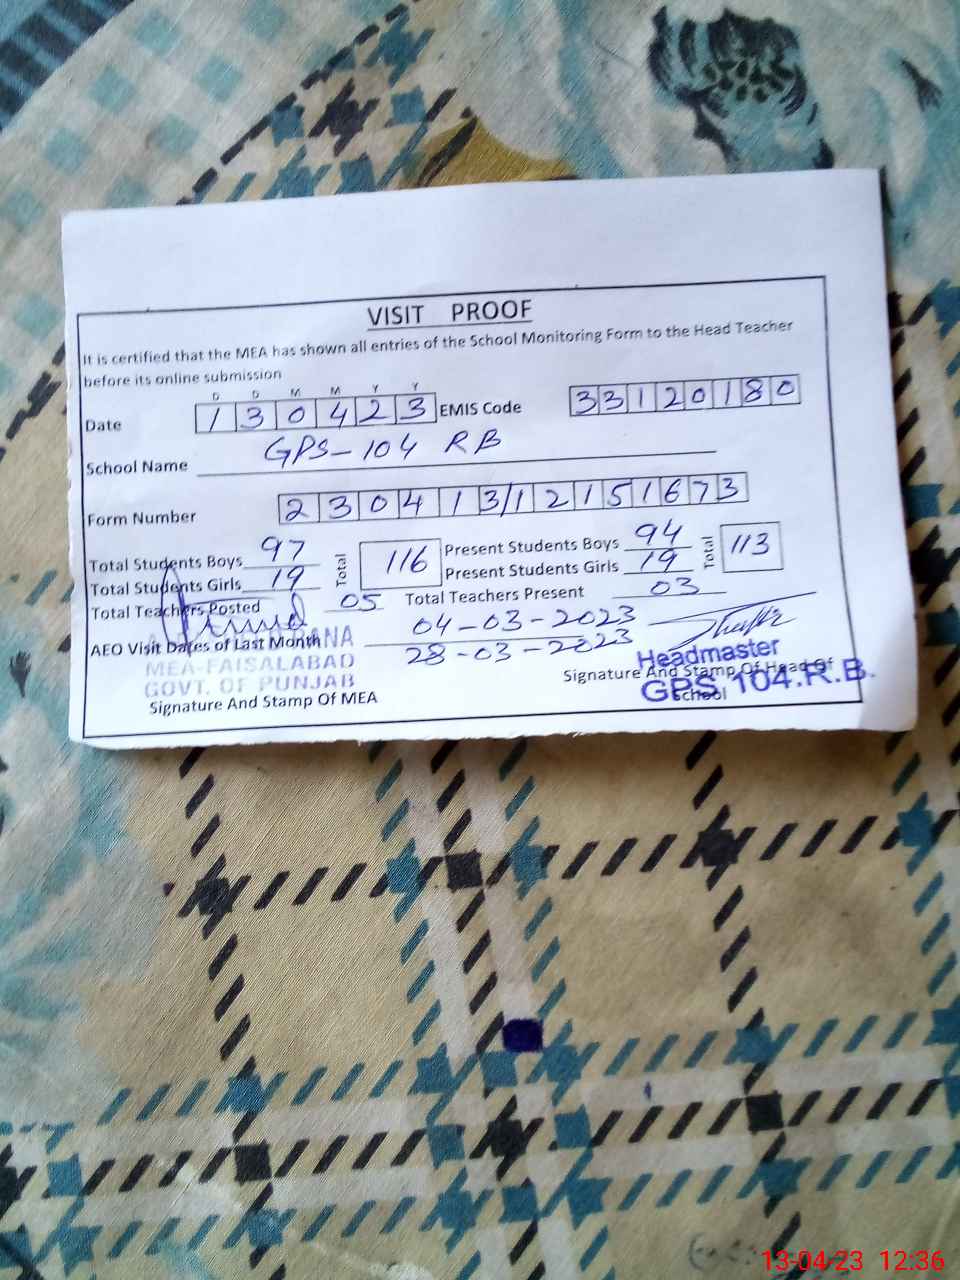 VISIT PROOF
It is certified that the MEA has shown all entries of the School Monitoring Form to the Head Teacher
before its online submission
D D M M Y Y
Date 130423 EMIS Code 33120180
School Name GPS-104 RB
Form Number 230413/12151673
Total Students Boys 97 Total 116 Present Students Boys 94 Total 113
Total Students Girls 19 Present Students Girls 19
Total Teachers Posted 05 Total Teachers Present 03
AEO Visit Dates of Last Month 04-03-2023
28-03-2023
MEA-FAISALABAD
GOVT. OF PUNJAB
Signature And Stamp Of MEA
Headmaster
GPS 104.R.B.
Signature And Stamp Of Head Of
School
13-04-23 12:36